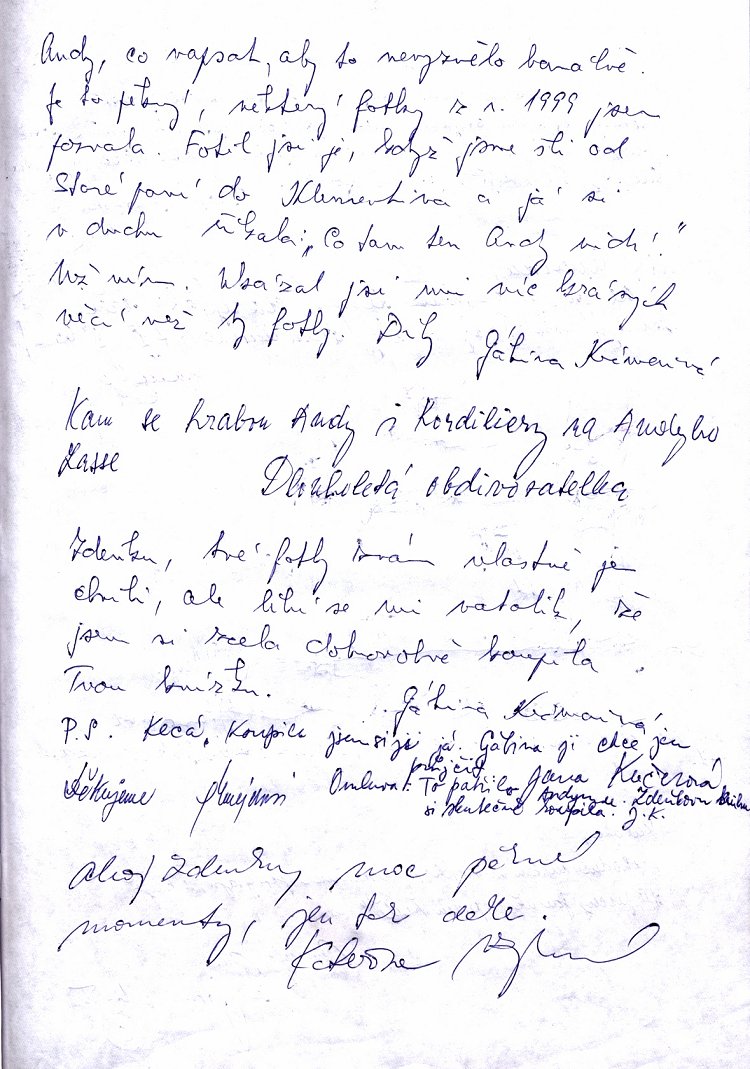 Andy, co napsat, aby to nevyznělo banálně.
Je to pěkný, některý fotky z r. 1999 jsem
poznala. Fotil jsi je, když jsme šli od
Staré paní do Klementina a já si
v duchu říkala: „Co tam ten Andy vidí?"
Už vím. Ukázal jsi mi víc krásných
věcí než ty fotky. Díky Gábina
Kam se hrabou Andy i Kordiliery na Andyho
Lasse
Dlouholetá obdivovatelka
Zdeňku, tvé fotky znám vlastně jen
chvíli, ale líbí se mi natolik, že
jsem si zcela dobrovolně koupila
Tvou knížku.
Gábina
P.S. Kecá. Koupila jsem si ji já. Gábina ji chce jen
půjčit.
Jana Kučerová
Děkujeme
Omluva: To patřilo Andymu. Zdeňkovu knihu
si skutečně koupila. J.K.
Ahoj Zdeňku, moc pěkné
momenty, jen tak dále.
Kateřina